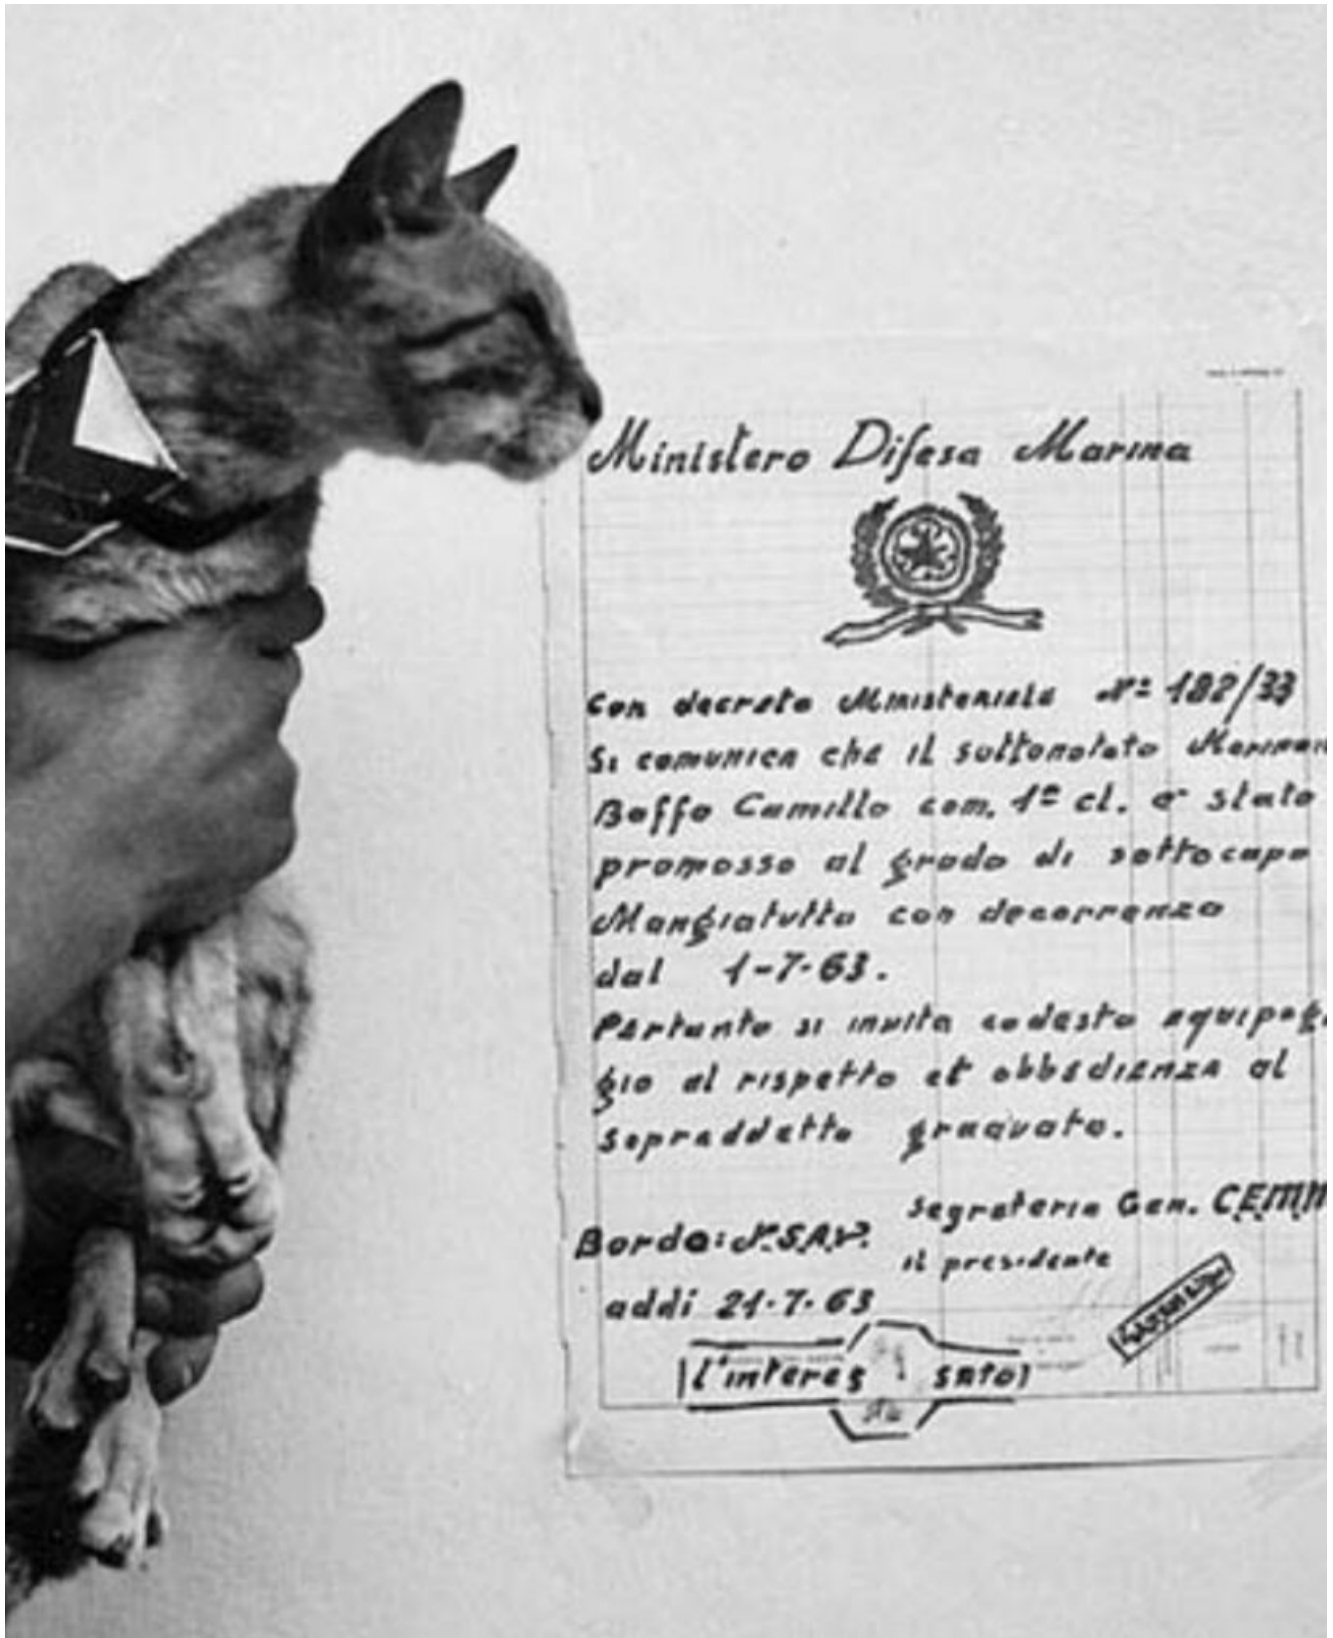 Ministero Difesa Marina
Con decreto Ministeriale Nº 182/33
Si comunica che il sottonotato
Baffo Camillo com. 1ª cl. è stato
promosso al grado di sottocapo
Mangiatutto con decorrenza
dal 1-7-63.
Pertanto si invita codesto equipag
gio al rispetto et obbedienza al
sopraddetto graduato.
Segreteria Gen.
Bordo: N.S.A.V.
il presidente
addi 21-7-63
l'interes sato